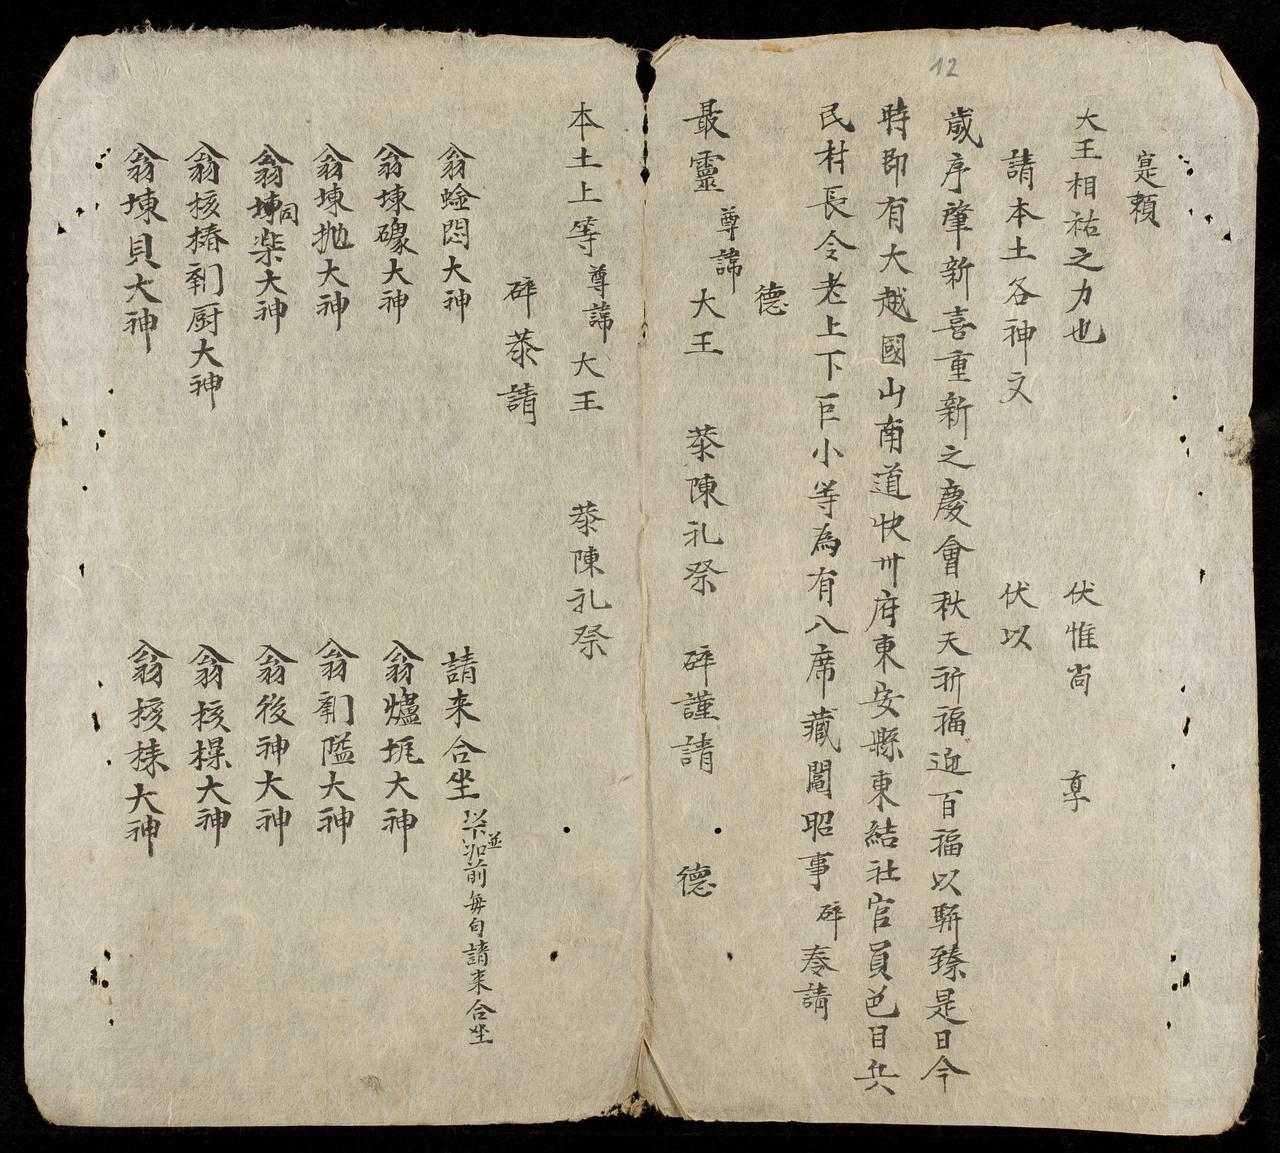 12
寔頼
大王相祐之力也 伏惟尚 享
請本土各神文 伏以
歲序肇新喜重新之慶會秋天祈福迎百福以駢臻是日今
時即有大越國山南道快州府東安縣東結社官員邑目兵
民村長令老上下巨小等為有八席藏䦨昭事 碎 奏請
德
最靈 尊諱 大王 恭陳礼祭 碎謹請 德
本土上等 尊諱 大王 恭陳礼祭
碎 恭請
翁蜍悶大神 請来合坐 並前每旬請来合坐
翁堜磉大神 翁爐坭大神
翁堜抛大神 翁𨷯隘大神
翁堜同柴大神 翁後神大神
翁核椿𨷯厨大神 翁核楳大神
翁堜貝大神 翁核㭐大神